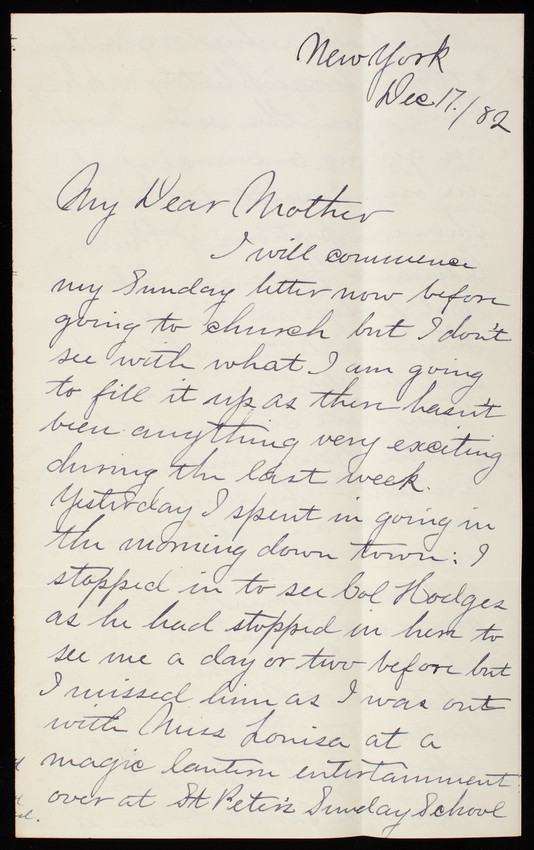 New York
Dec. 17./82
My Dear Mother
I will commence
my Sunday letter now before
going to church but I don't
see with what I am going
to fill it up as there hasn't
been anything very exciting
during the last week.
Yesterday I spent in going in
the morning down town: I
stopped in to see Col Hodges
as he had stopped in here to
see me a day or two before but
I missed him as I was out
with Miss Louisa at a
magic lantern entertainment
over at St Peter's Sunday School